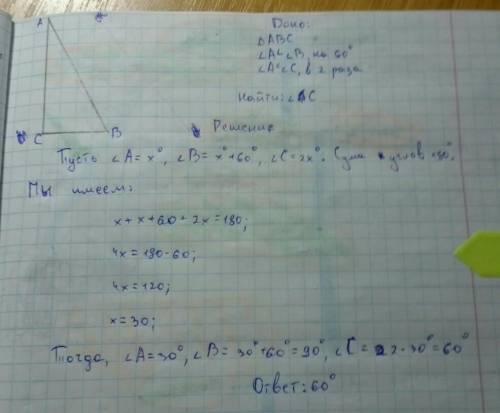 A
Дано:
△ABC
∠A<∠B, на 60°
∠A<∠C, в 2 раза
Найти: ∠C
C
B
Решение
Пусть ∠A = x°, ∠B = x°+60°, ∠C = 2x°. Сумма углов 180°.
Мы имеем:
x + x + 60 + 2x = 180;
4x = 180 - 60;
4x = 120;
x = 30;
Тогда, ∠A = 30°, ∠B = 30°+60° = 90°, ∠C = 2·30° = 60°
Ответ: 60°